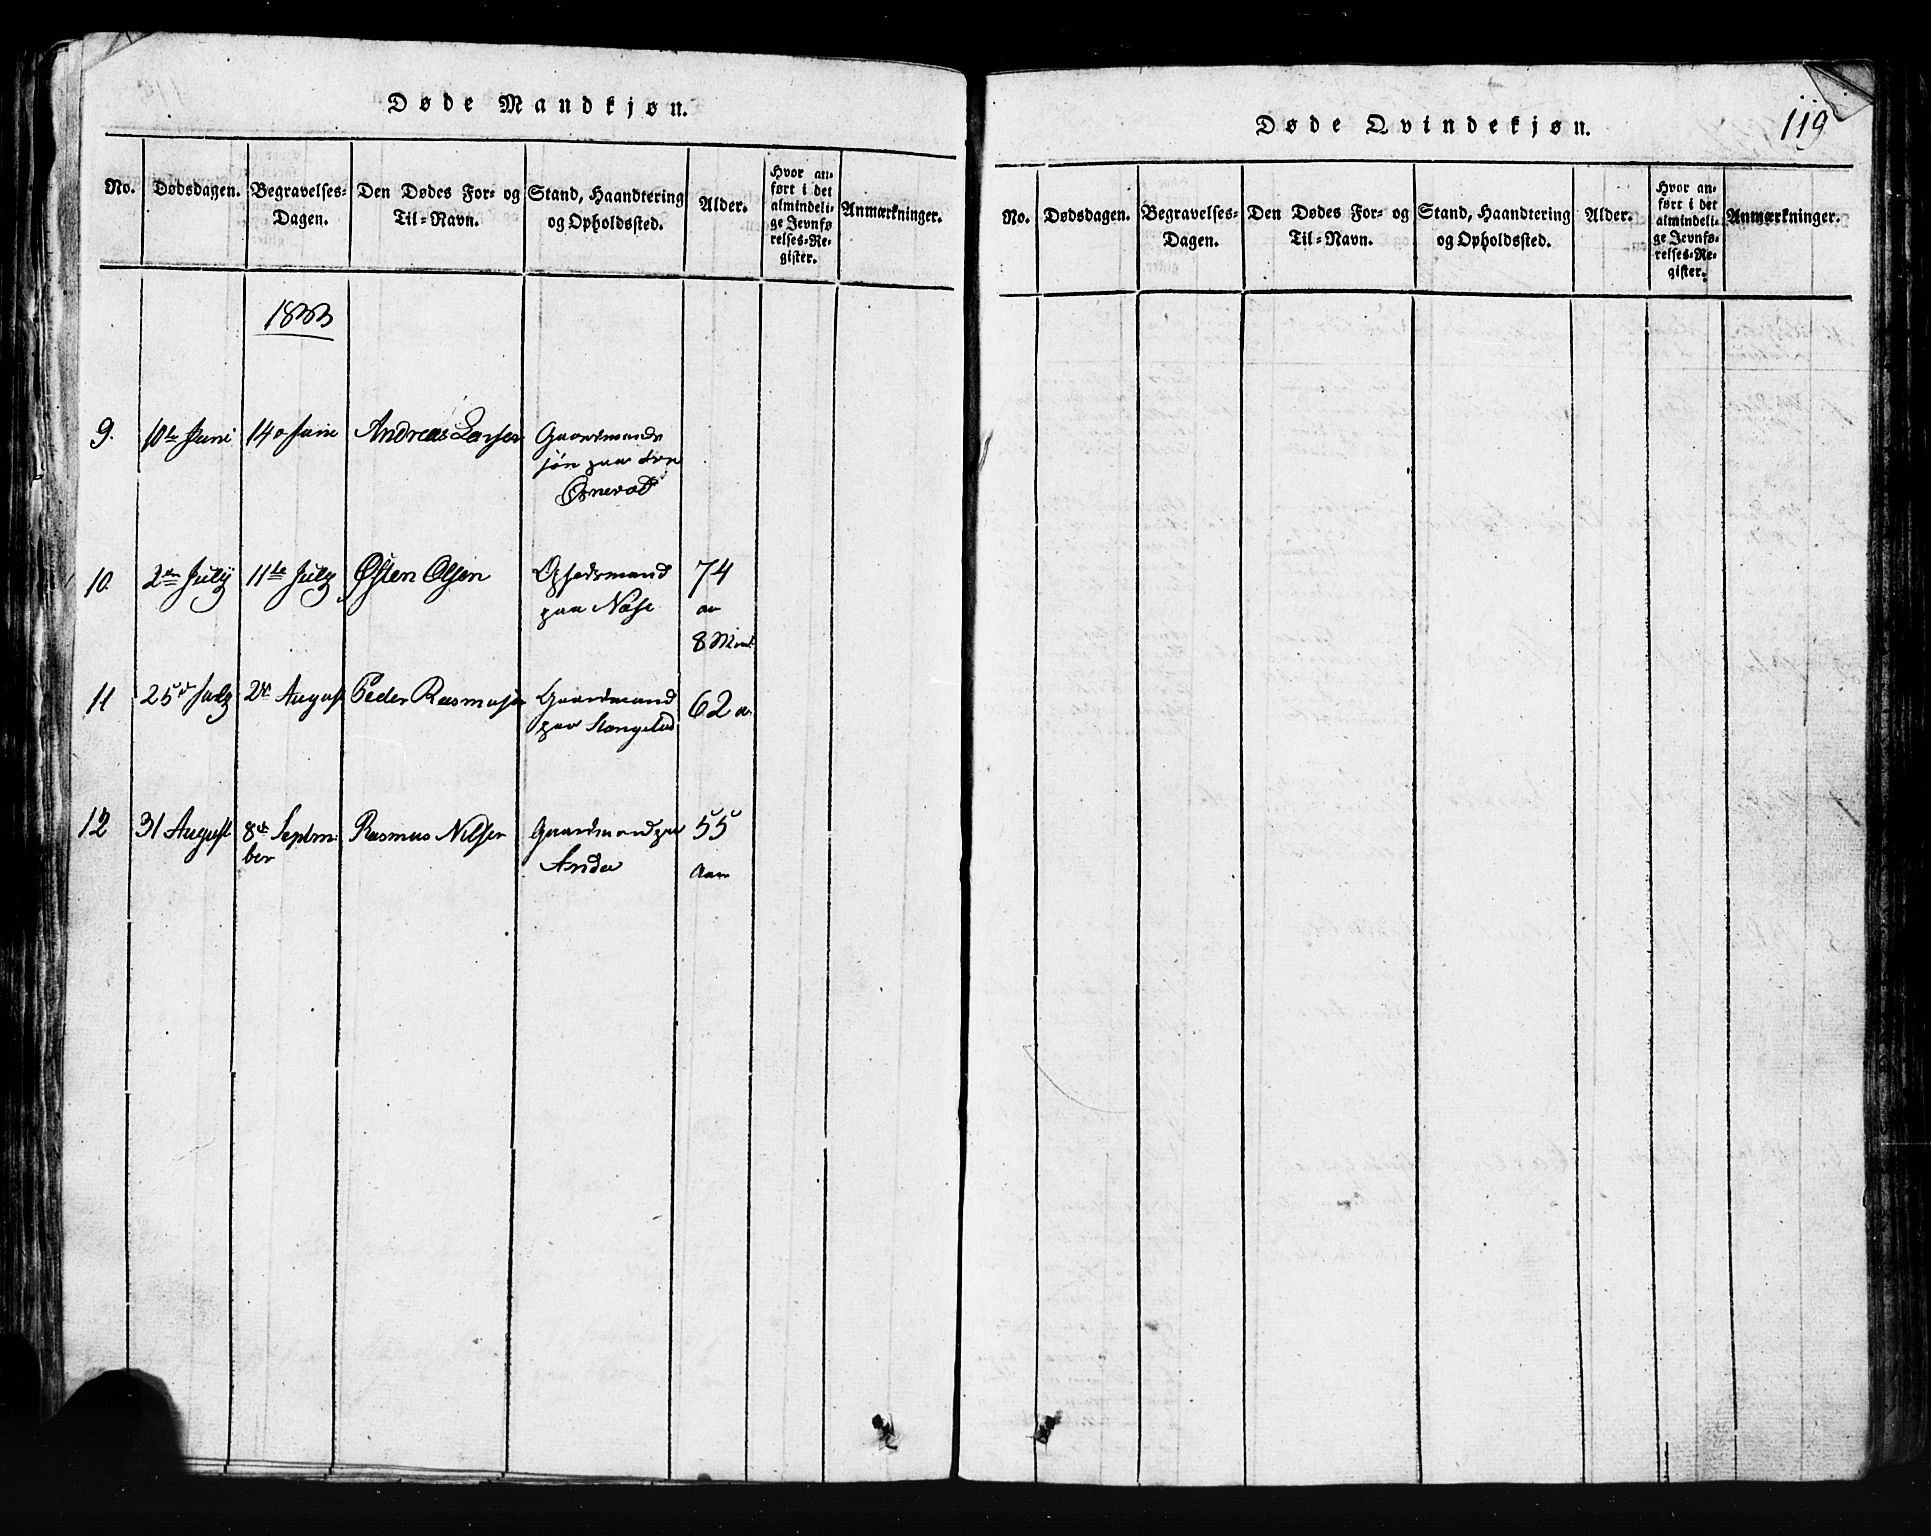 Døde Mandkjøn.
No. Dødsdagen. Begravelses-Dagen. Den Dødes For- og Til-Navn. Stand, Haandtering og Opholdssted. Alder. Hvor anført i det almindelige Jevnførelses-Register. Anmærkninger.
1833
9. 10de Juni 14 Juni Andreas Larsen Gaardmands
søn paa
10. 2den July 11te July Østen Olsen Opsedsmand 74
paa Næse
8 Mnd.
11 25de July 2de August Peder Rasmusen Gaardmand 62 a.
paa Stangeland
12 31 August 8de Septem- Rasmus Nilsen Gaardmand paa 55
ber Anda Aar
Døde Qvindekjøn.
119
No. Dødsdagen. Begravelses-Dagen. Den Dødes For- og Til-Navn. Stand, Haandtering og Opholdssted. Alder. Hvor anført i det almindelige Jevnførelses-Register. Anmærkninger.